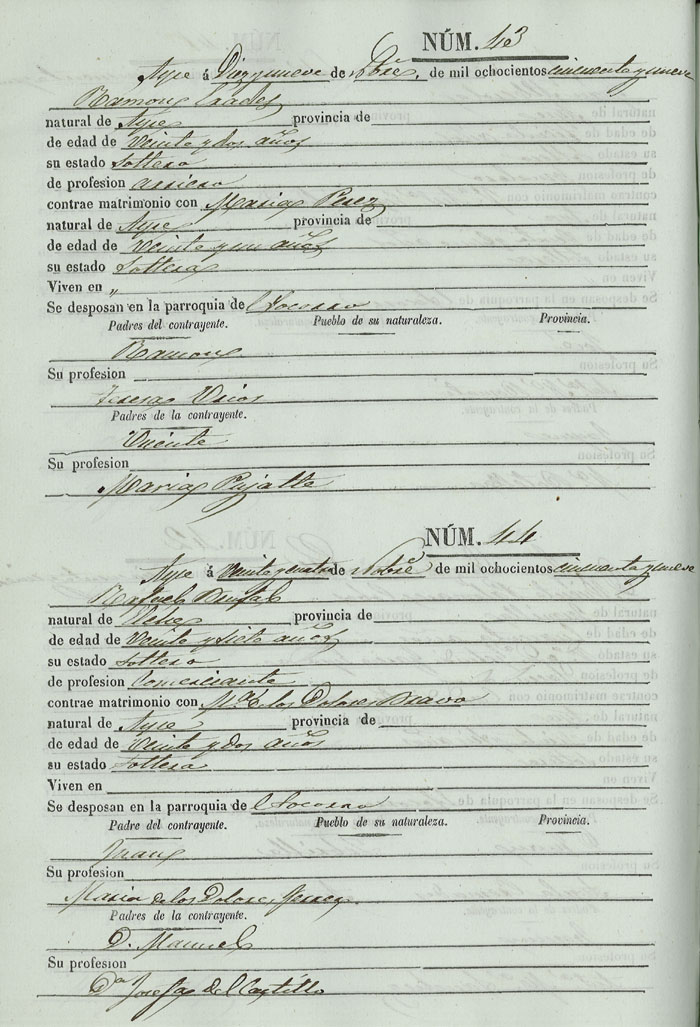 NÚM. 43
Aspe á Diezynueve de Nobre. de mil ochocientos cincuenta y nueve
Ramon Prades
natural de Aspe provincia de
de edad de Veinte y dos años
su estado Soltero
de profesion arriero
contrae matrimonio con Maria Perez
natural de Aspe provincia de
de edad de Veinte y un años
su estado Soltera
Viven en "
Se desposan en la parroquia de el Socorro
Padres del contrayente. Pueblo de su naturaleza. Provincia.
Ramon
Su profesion
Teresa
Padres de la contrayente.
Vicente
Su profesion
Maria Pujalte
NÚM. 44
Aspe á Veinte y cuatro de Nobre de mil ochocientos cincuenta y nueve
Rafael Brufal
natural de Elche provincia de
de edad de Veinte y siete años
su estado Soltero
de profesion Comerciante
contrae matrimonio con Ma. de los Dolores Bravo
natural de Aspe provincia de
de edad de Veinte y dos años
su estado Soltera
Viven en
Se desposan en la parroquia de el Socorro
Padre del contrayente. Pueblo de su naturaleza. Provincia.
Juan
Su profesion
Maria de los Dolores
Padres de la contrayente.
D. Manuel
Su profesion
Da. Josefa del Castillo